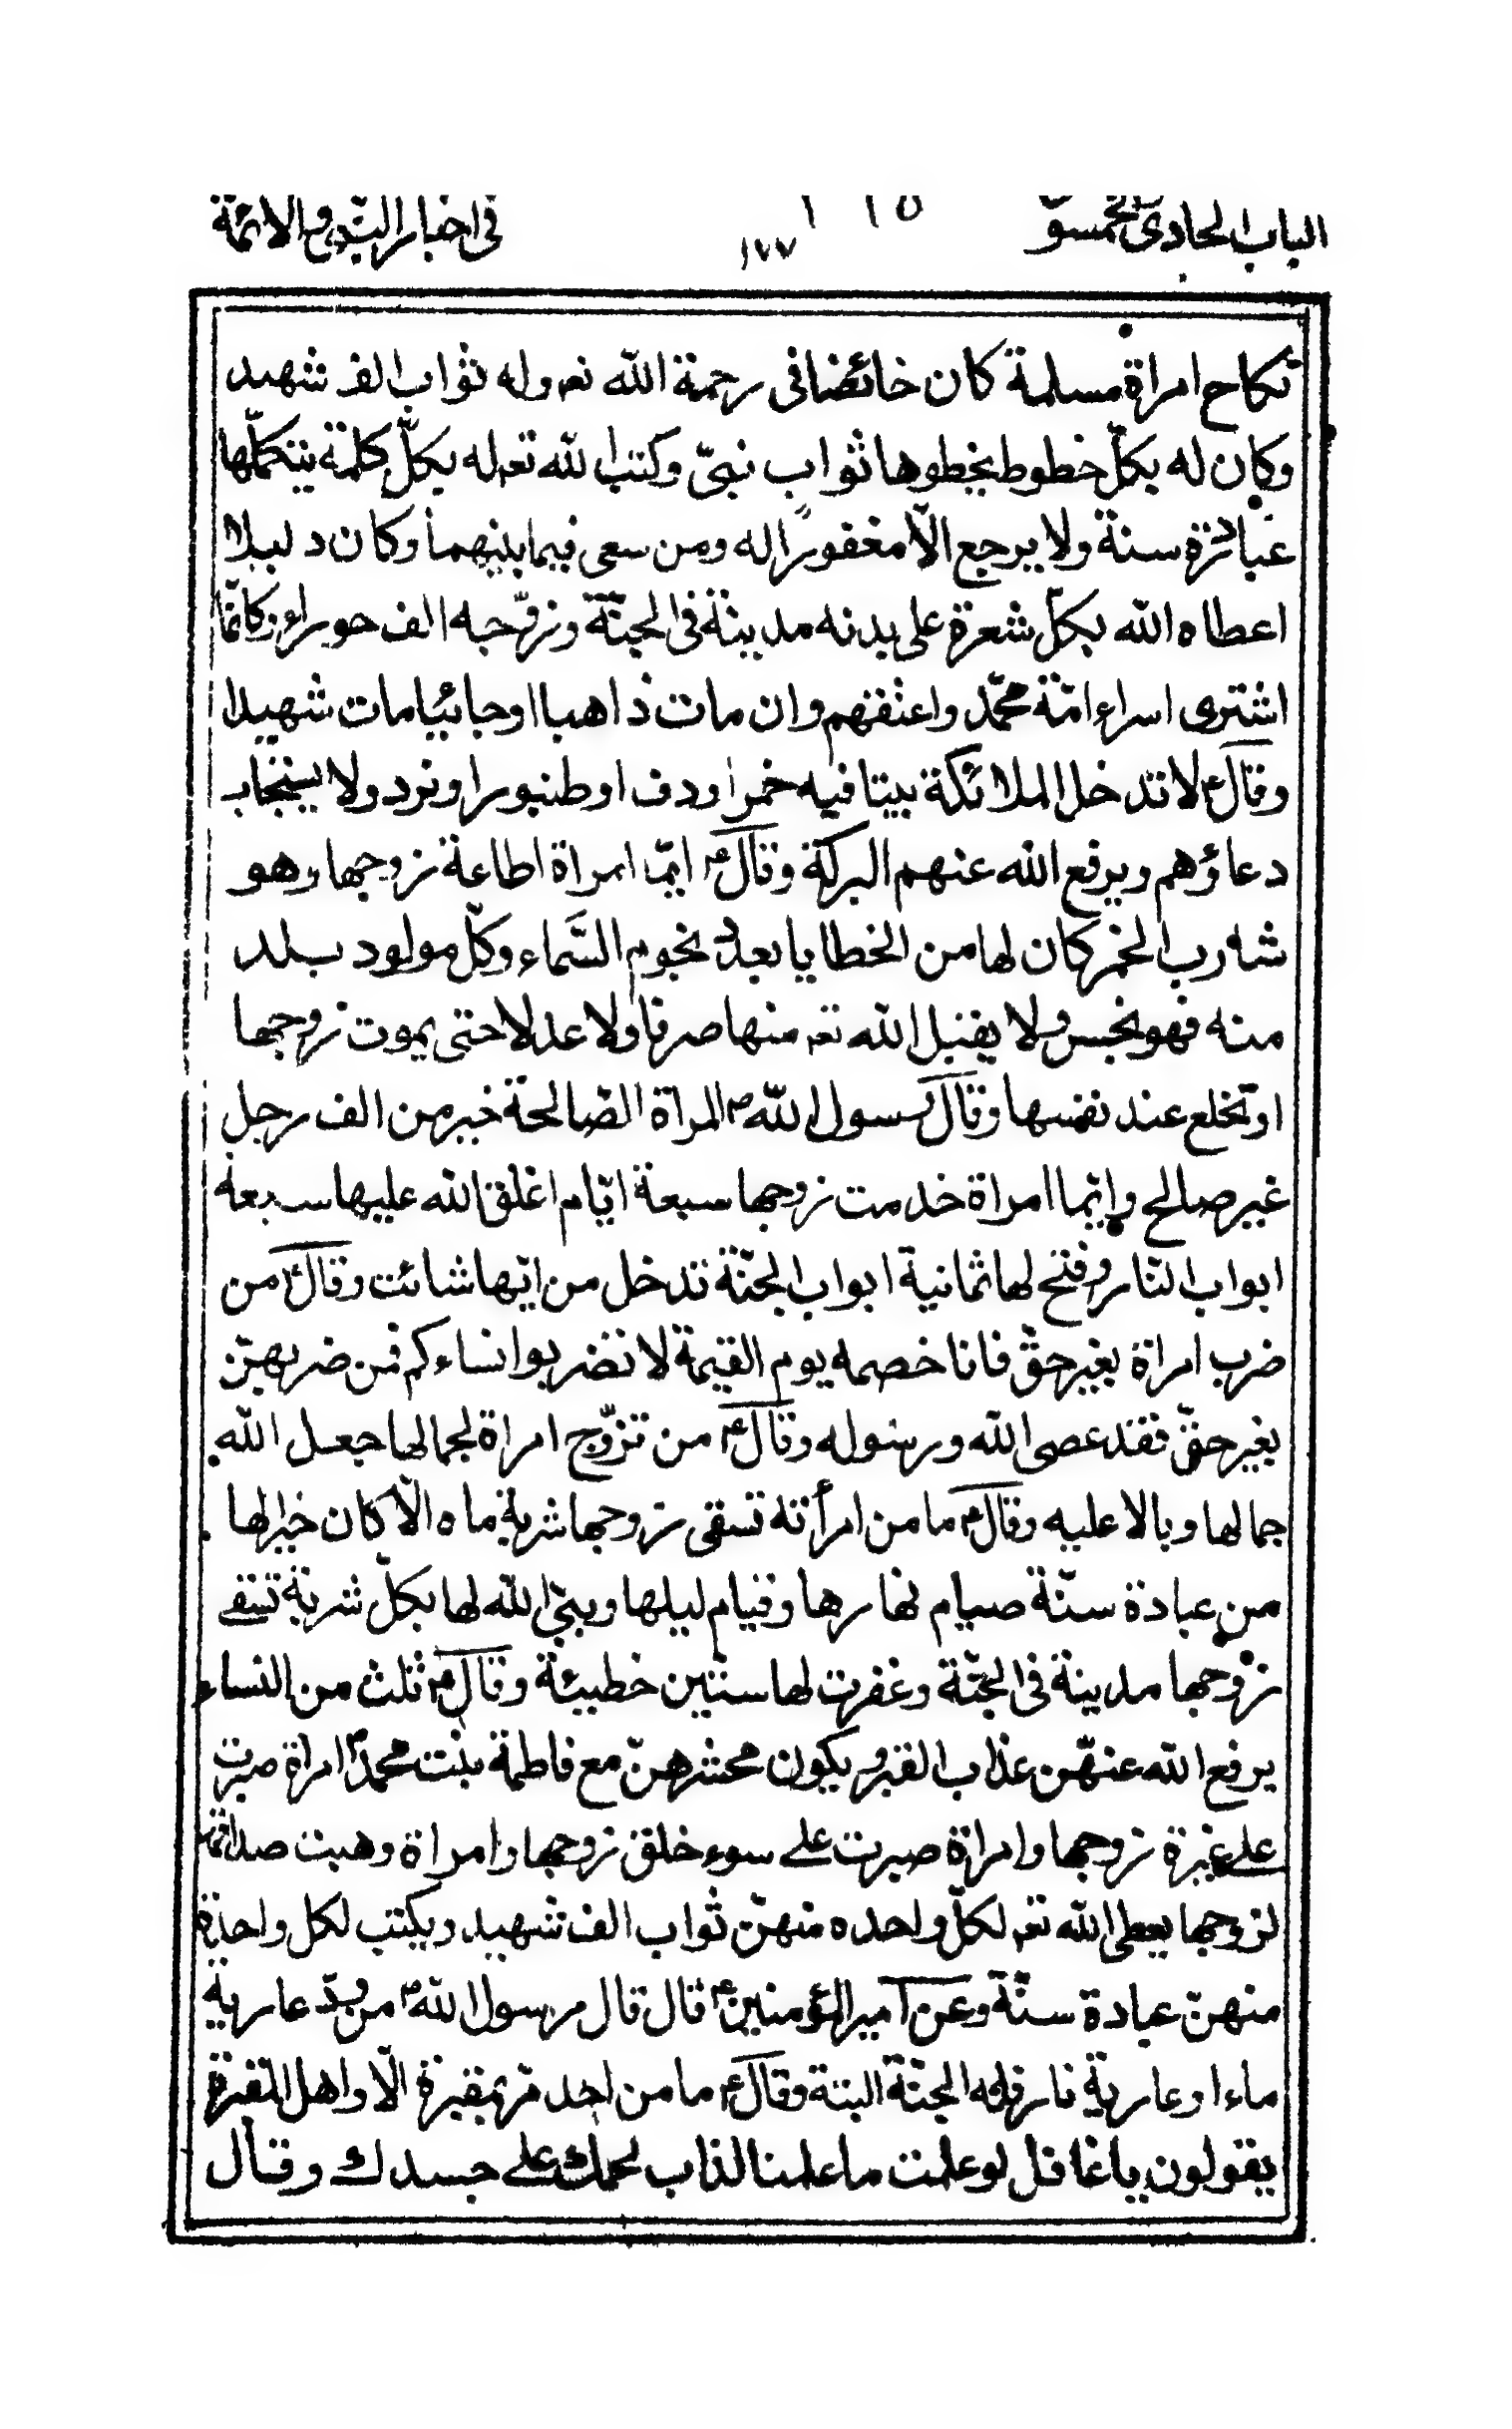 الباب الحادی الخمسو ١٧٧ فی اخبار النبی و الائمة
نكاح امراة مسلمة كان خائضا فی رحمة الله تعه وله ثواب الف شهيد
وكان له بكلّ خطوط يخطوها ثواب نبیّ وكتب الله تعه له بكلّ كلمة يتكلّمها
عبادة سنة ولا يرجع الّا مغفورًا له ومن سعی فيما بينهما وكان دليلا
اعطاه الله بكلّ شعرة علی بدنه مدينة فی الجنّة وزوّجه الف حوراء وكانّما
اشتری اسراء امّة محمّد واعتقهم وان مات ذاهبا او جائيا مات شهيدا
وقال ع لا تدخل الملائكة بيتا فيه خمر او دف او طنبور او نرد ولا يستجاب
دعاؤهم ويرفع الله عنهم البركة وقال ع ايّما امراة اطاعة زوجها وهو
شارب الخمر كان لها من الخطايا بعدد نجوم السّماء وكلّ مولود يلد
منه فهو نجس ولا يقبل الله تعه منها صرفا ولا عدلا حتی يموت زوجها
او تخلع عند نفسها وقال رسول الله ص المراة الصّالحة خير من الف رجل
غير صالح وايّما امراة خدمت زوجها سبعة ايّام اغلق الله عليها سبعة
ابواب النّار وفتح لها ثمانية ابواب الجنّة تدخل من ايّها شائت وقال ع من
ضرب امراة بغير حقّ فانا خصمه يوم القيمة لا تضربوا نساءكم فمن ضربهنّ
بغير حقّ فقد عصی الله ورسوله وقال ع من تزوّج امراة لجمالها جعل الله
جمالها وبالا عليه وقال ع ما من امرأته تسقی زوجها شربة ماء الّا كان خيرا لها
من عبادة سنّة صيام نهارها وقيام ليلها ويبنی الله لها بكلّ شربة تسقی
زوجها مدينة فی الجنّة وغفرت لها ستّين خطيئة وقال ع ثلث من النساء
يرفع الله عنهّن عذاب القبر ويكون محشرهنّ مع فاطمة بنت محمد ص امراة صبرت
علی غيرة زوجها وامراة صبرت علی سوء خلق زوجها وامراة وهبت صداقها
لزوجها يعطی الله تعه لكلّ واحده منهنّ ثواب الف شهيد ويكتب لكل واحدة
منهنّ عبادة سنّة وعن امير المؤمنين ع قال قال رسول الله ص من ردّ عارية
ماء او عارية نار فله الجنّة البتة وقال ع ما من احد مرّ بمقبرة الّا واهل المقبرة
يقولون يا غافل لو علمت ما علمنا لذاب لحمك علی جسدك وقال